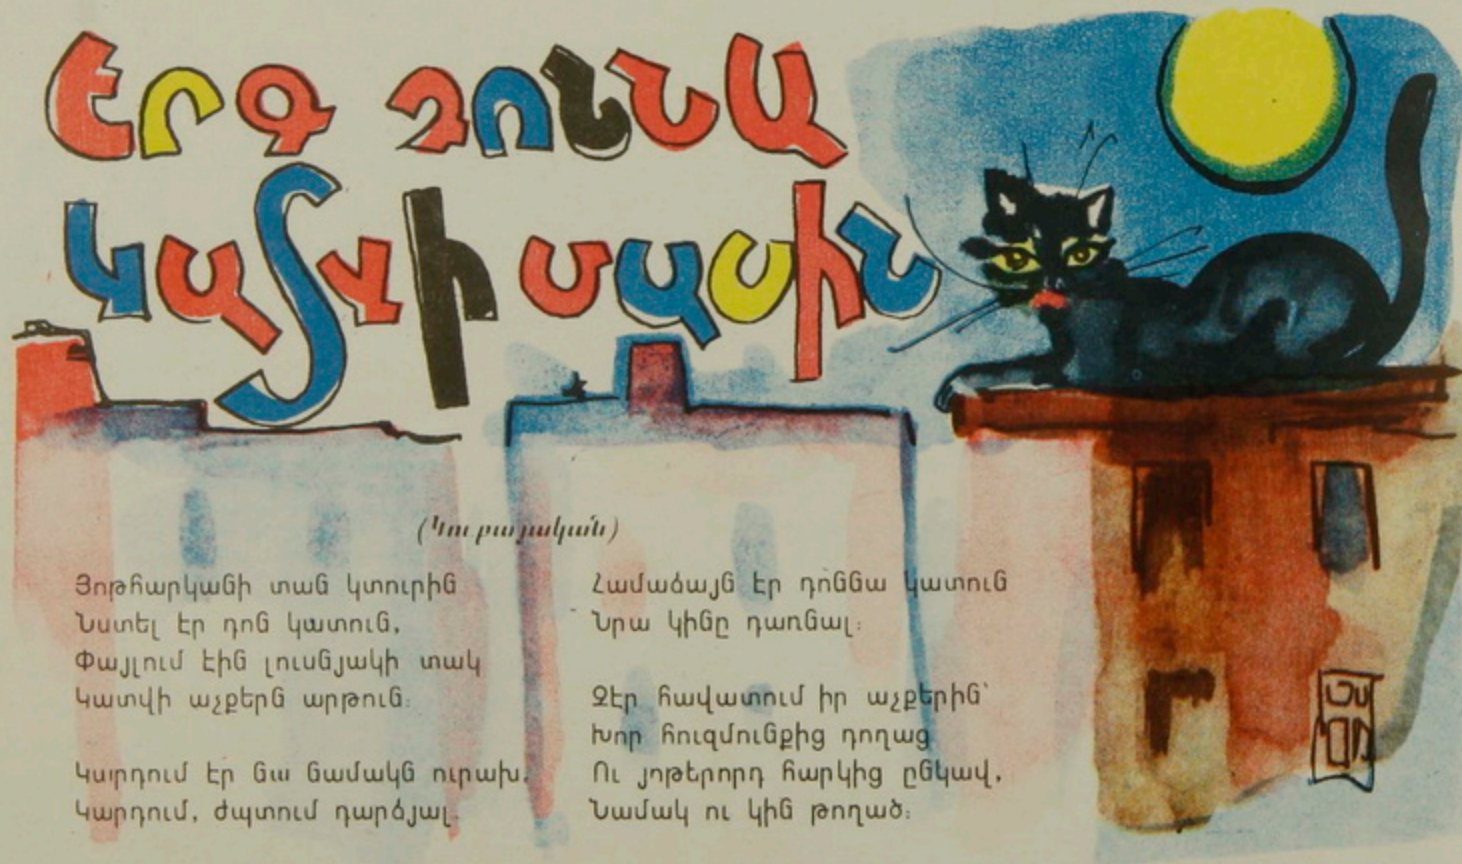 Էրգ դոննա
կատվի մասին
(Կուբայական)
Յոթհարկանի տան կտուրին
Նստել էր դոն կատուն,
Փայլում էին լուսնյակի տակ
Կատվի աչքերն արթուն։
Կարդում էր նա նամակն ուրախ,
Կարդում, ժպտում դարձյալ.
Համաձայն էր դոննա կատուն
Նրա կինը դառնալ։
Չէր հավատում իր աչքերին՝
Խոր հուզմունքից դողաց
Ու յոթերորդ հարկից ընկավ,
Նամակ ու կին թողած։